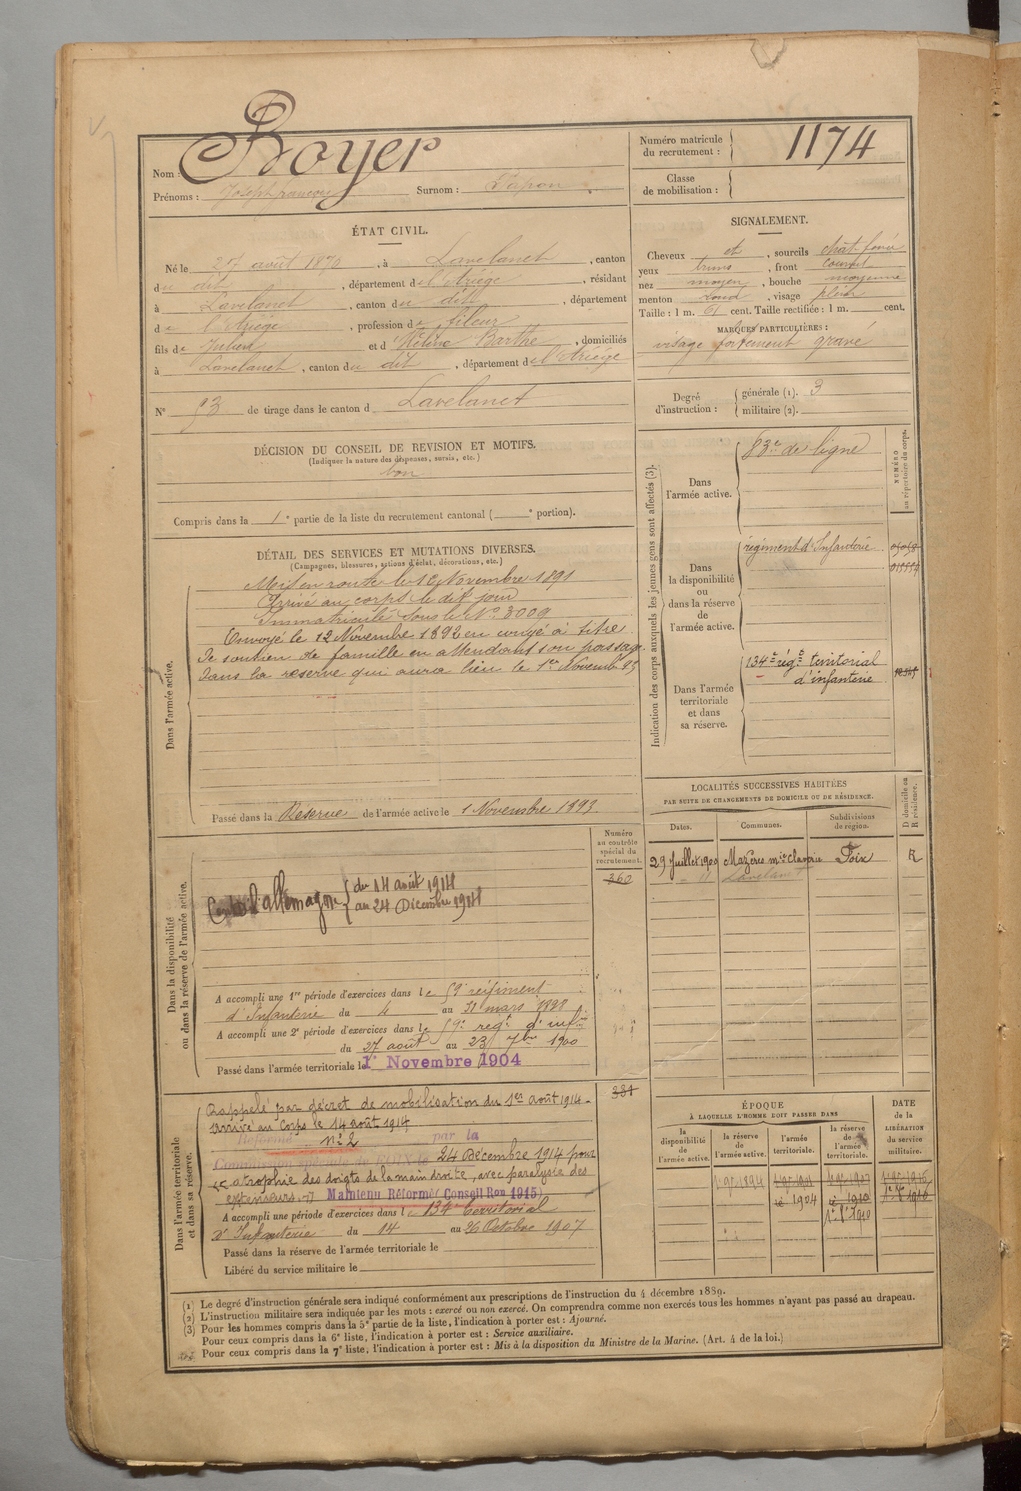 Nom : Boyer
Prénoms : Joseph françois Surnom : Papon
Numéro matricule du recrutement : 1174
Classe de mobilisation :
ÉTAT CIVIL.
Né le 27 août 1870, à Lavelanet, canton
du dit, département de l'Ariége, résidant
à Lavelanet, canton du dit, département
de l'Ariége, profession de fileur
fils de Julien et d' Hélène Barthe, domiciliés
à Lavelanet, canton du dit, département de l'Ariége
N° 53 de tirage dans le canton d Lavelanet
SIGNALEMENT.
Cheveux et, sourcils chat foncé
yeux bruns, front couvert
nez moyen, bouche moyenne
menton rond, visage plein
Taille : 1 m. 61 cent. Taille rectifiée : 1 m. cent.
MARQUES PARTICULIÈRES :
visage fortement gravé
Degré d'instruction : générale (1). 3
militaire (2).
DÉCISION DU CONSEIL DE REVISION ET MOTIFS.
(Indiquer la nature des dispenses, sursis, etc.)
bon
Compris dans la 1e partie de la liste du recrutement cantonal ( e portion).
DÉTAIL DES SERVICES ET MUTATIONS DIVERSES.
(Campagnes, blessures, actions d'éclat, décorations, etc.)
Dans l'armée active.
Mis en route le 12 Novembre 1891
Arrivé au corps le dit jour
Immatriculé sous le N° 3009
Envoyé le 12 Novembre 1892 en congé à titre
de soutien de famille en attendant son passage
dans la réserve qui aura lieu le 1er Novembre 93
Passé dans la Réserve de l'armée active le 1 Novembre 1893
Indication des corps auxquels les jeunes gens sont affectés (3).
NUMÉRO au répertoire du corps.
Dans l'armée active.
83e de ligne
Dans la disponibilité ou dans la réserve de l'armée active.
régiment d'Infanterie
Dans l'armée territoriale et dans sa réserve.
134e régt territorial
d'infanterie
LOCALITÉS SUCCESSIVES HABITÉES
PAR SUITE DE CHANGEMENTS DE DOMICILE OU DE RÉSIDENCE.
Dates. Communes. Subdivisions de région. D domicile ou R résidence.
29 Juillet 1900 Mazères Foix R
Lavelanet
Dans la disponibilité ou dans la réserve de l'armée active.
Numéro au contrôle spécial du recrutement.
360
Contre l'allemagne du 14 août 1914
au 24 Décembre 1914
A accompli une 1re période d'exercices dans le 59e régiment
d'Infanterie du 4 au 31 mars 1898
A accompli une 2e période d'exercices dans le 59e régt d'inf
du 27 août au 23 7bre 1900
Passé dans l'armée territoriale le 1er Novembre 1904
Dans l'armée territoriale et dans sa réserve.
381
Rappelé par décret de mobilisation du 1er août 1914.
arrivé au Corps le 14 août 1914
Réformé n° 2 par la
Commission spéciale de FOIX le 24 Décembre 1914 pour
atrophie des doigts de la main droite, avec paralysie des
extenseurs. Maintenu Réformé (Conseil Ron 1915)
A accompli une période d'exercices dans le 134e territorial
d'Infanterie du 14 au 26 Octobre 1907
Passé dans la réserve de l'armée territoriale le
Libéré du service militaire le
ÉPOQUE
À LAQUELLE L'HOMME DOIT PASSER DANS
la disponibilité de l'armée active. la réserve de l'armée active. l'armée territoriale. la réserve de l'armée territoriale.
DATE de la LIBÉRATION du service militaire.
(1) Le degré d'instruction générale sera indiqué conformément aux prescriptions de l'instruction du 4 décembre 1889.
(2) L'instruction militaire sera indiquée par les mots : exercé ou non exercé. On comprendra comme non exercés tous les hommes n'ayant pas passé au drapeau.
(3) Pour les hommes compris dans la 5e partie de la liste, l'indication à porter est : Ajourné.
Pour ceux compris dans la 6e liste, l'indication à porter est : Service auxiliaire.
Pour ceux compris dans la 7e liste, l'indication à porter est : Mis à la disposition du Ministre de la Marine. (Art. 4 de la loi.)